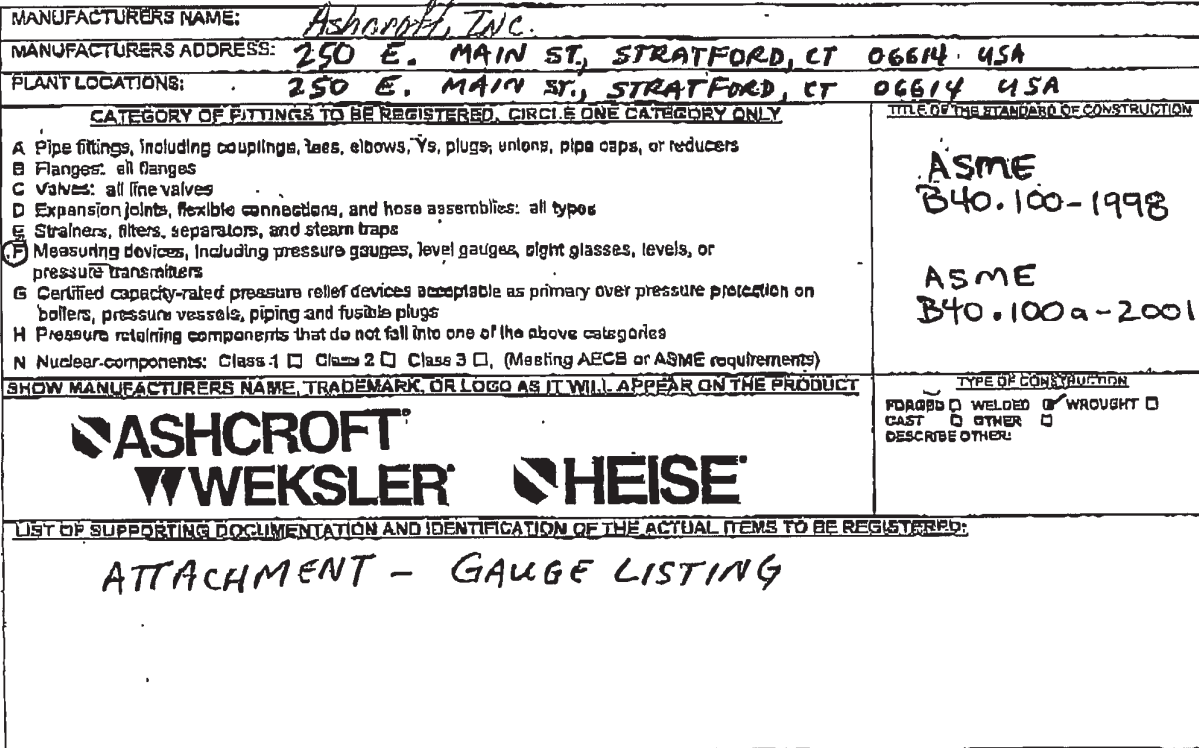 MANUFACTURERS NAME: Ashcroft, INC.
MANUFACTURERS ADDRESS: 250 E. MAIN ST., STRATFORD, CT 06614 USA
PLANT LOCATIONS: 250 E. MAIN ST., STRATFORD, CT 06614 USA
CATEGORY OF FITTINGS TO BE REGISTERED, CIRCLE ONE CATEGORY ONLY
A Pipe fittings, including couplings, tees, elbows, Ys, plugs, unions, pipe caps, or reducers
B Flanges: all flanges
C Valves: all line valves
D Expansion joints, flexible connections, and hose assemblies: all types
E Strainers, filters, separators, and steam traps
F Measuring devices, including pressure gauges, level gauges, sight glasses, levels, or
pressure transmitters
G Certified capacity-rated pressure relief devices acceptable as primary over pressure protection on
boilers, pressure vessels, piping and fusible plugs
H Pressure retaining components that do not fall into one of the above categories
N Nuclear components: Class 1 □ Class 2 □ Class 3 □, (Meeting AECB or ASME requirements)
TITLE OF THE STANDARD OF CONSTRUCTION
ASME
B40.100-1998
ASME
B40.100a-2001
SHOW MANUFACTURERS NAME, TRADEMARK, OR LOGO AS IT WILL APPEAR ON THE PRODUCT
ASHCROFT
WEKSLER HEISE
TYPE OF CONSTRUCTION
FORGED □ WELDED ☑ WROUGHT □
CAST □ OTHER □
DESCRIBE OTHER:
LIST OF SUPPORTING DOCUMENTATION AND IDENTIFICATION OF THE ACTUAL ITEMS TO BE REGISTERED:
ATTACHMENT - GAUGE LISTING